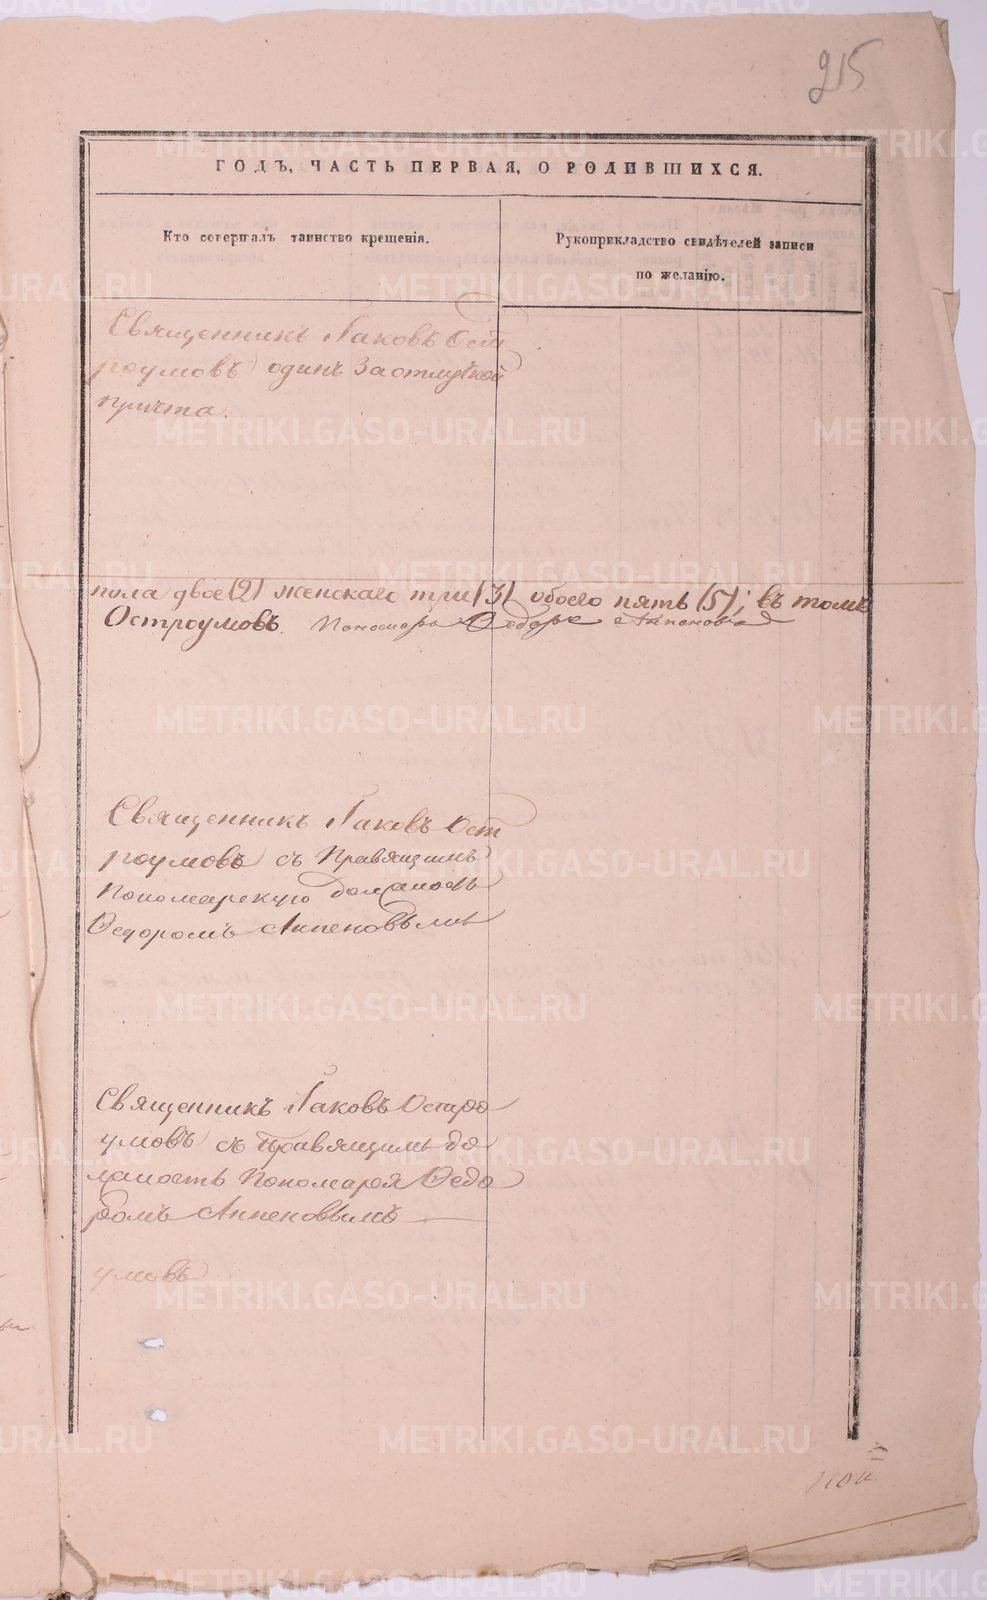 215
ГОДЪ, ЧАСТЬ ПЕРВАЯ, О РОДИВШИХСЯ.
Кто совершалъ таинство крещенія.
Рукоприкладство свидѣтелей записи
по желанію.
Священникъ Іаковъ Ост
роумовъ одинъ За отлучкой
причта.
пола двое (2) женскаго три (3) обоего пять (5); въ томъ
Остроумовъ. Пономарь Ѳедоръ
Священникъ Іаковъ Ост
роумовъ съ Правящимъ
Пономарскую должность
Ѳедоромъ Аппеновымъ
Священникъ Іаковъ Остро
умовъ съ Правящимъ до
лжность Пономаря Ѳедо
ромъ Аппеновымъ
умовъ
METRIKI.GASO-URAL.RU